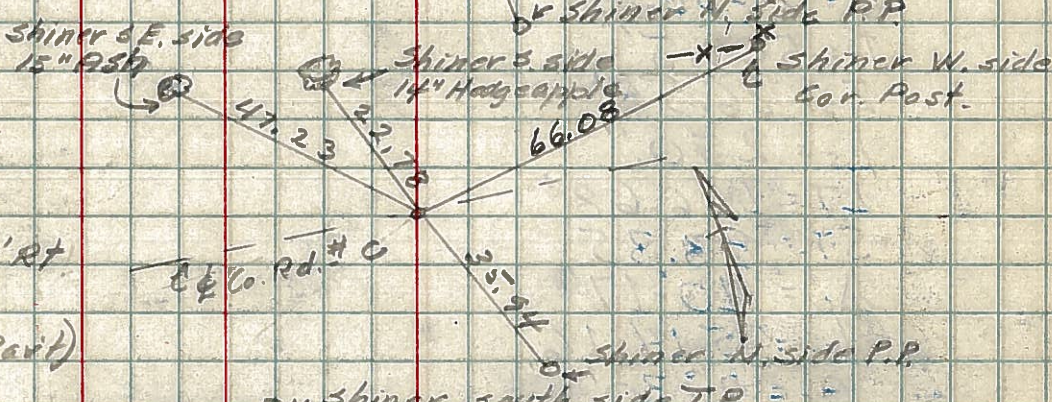 Shiner N. side P.P.
Shiner S.E. side
15" Ash
Shiner S. side
14" Hedgeapple
Shiner W. side
Cor. Post.
47.23
22.78
66.08
'Rt
₵ Co. Rd. #
35.94
Shiner N. side P.P.
Shiner south side T.P.